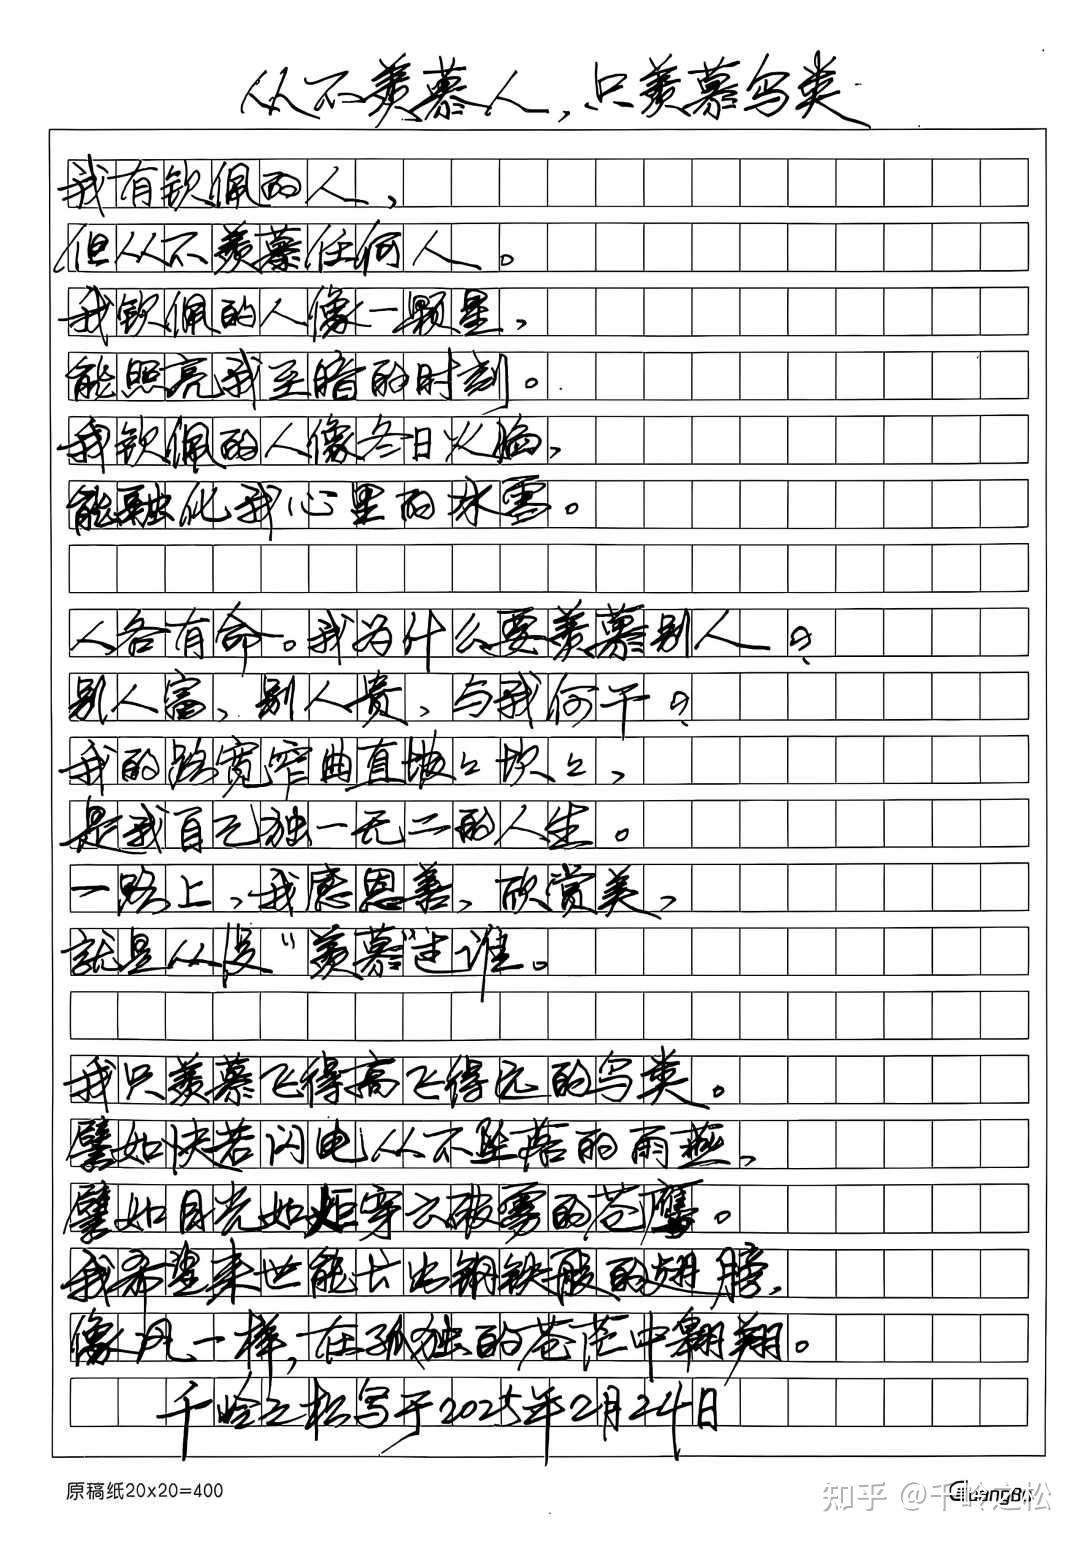 从不羡慕人，只羡慕鸟类
我有钦佩的人，
但从不羡慕任何人。
我钦佩的人像一颗星，
能照亮我至暗的时刻。
我钦佩的人像冬日火焰，
能融化我心里的冰雪。
人各有命。我为什么要羡慕别人？
别人富，别人贵，与我何干？
我的路宽窄曲直坡々坎々，
是我自己独一无二的人生。
一路上，我感恩善，欣赏美，
就是从没“羡慕”过谁。
我只羡慕飞得高飞得远的鸟类。
譬如快若闪电从不坠落的雨燕，
譬如目光如炬穿云破雾的苍鹰。
我希望来世能长出钢铁般的翅膀，
像风一样，在孤独的苍茫中翱翔。
千岭之松写于2025年2月24日
原稿纸20x20=400
GuangBo
知乎 @千岭之松